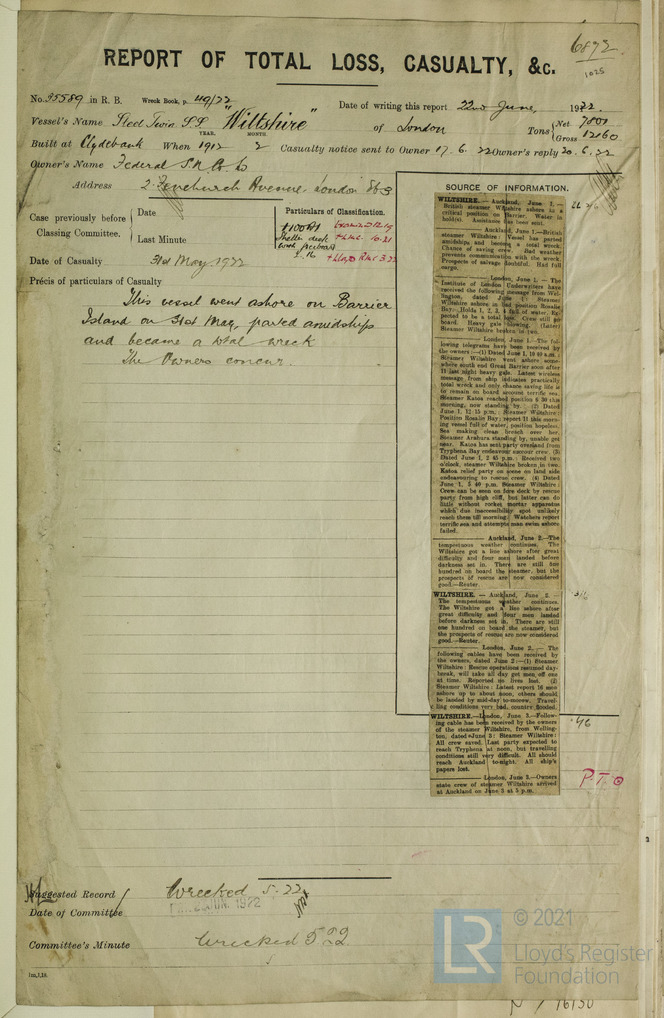 6872
1025
REPORT OF TOTAL LOSS, CASUALTY, &c.
No. 35589 in R. B. Wreck Book, p. 49/22 Date of writing this report 22nd June, 1922.
Vessel's Name Steel Twin S.S. "Wiltshire" of London Tons Net 7801 Gross 12160
YEAR. MONTH.
Built at Clydebank When 1912 2 Casualty notice sent to Owner 17.6.22 Owner's reply 20.6.22
Owner's Name Federal S.N. Co. Ld
Address 2. Fenchurch Avenue. London E.C.3
Case previously before Classing Committee.
Date
Last Minute
Particulars of Classification.
+100A1
Shelter deck
Date of Casualty 31st May 1922
Précis of particulars of Casualty
This vessel went ashore on Barrier
Island on 31st May, parted amidships
and became a total wreck
The Owners concur.
SOURCE OF INFORMATION.
WILTSHIRE. — Auckland, June 1.—
British steamer Wiltshire ashore in a
critical position on Barrier. Water in
hold(s). Assistance has been sent.
Auckland, June 1.—British
steamer Wiltshire: Vessel has parted
amidships and become a total wreck.
Chance of saving crew. Bad weather
prevents communication with the wreck.
Prospects of salvage doubtful. Had full
cargo.
London, June 1. — The
Institute of London Underwriters have
received the following message from Wel-
lington, dated June 1: Steamer
Wiltshire ashore in bad position Rosalie
Bay. Holds 1, 2, 3, 4 full of water. Ex-
pected to be a total loss. Crew still on
board. Heavy gale blowing. (Later)
Steamer Wiltshire broken in two.
London, June 1.—The fol-
lowing telegrams have been received by
the owners:—(1) Dated June 1, 10 40 a.m.:
Steamer Wiltshire went ashore some-
where south end Great Barrier soon after
11 last night heavy gale. Latest wireless
message from ship indicates practically
total wreck and only chance saving life is
to remain on board account terrific sea.
Steamer Katoa reached position 6 30 this
morning, now standing by. (2) Dated
June 1, 12 15 p.m.: Steamer Wiltshire:
Position Rosalie Bay; report 11 this morn-
ing vessel full of water, position hopeless.
Sea making clean breach over her.
Steamer Arahura standing by, unable get
near. Katoa has sent party overland from
Tryphena Bay endeavour succour crew. (3)
Dated June 1, 2 45 p.m.: Received two
o'clock, steamer Wiltshire broken in two.
Katoa relief party on scene on land side
endeavouring to rescue crew. (4) Dated
June 1, 5 40 p.m. Steamer Wiltshire:
Crew can be seen on fore deck by rescue
party from high cliff, but latter can do
little without rocket mortar apparatus
which due inaccessibility spot unlikely
reach them till morning. Watchers report
terrific sea and attempts man swim ashore
failed.
Auckland, June 2.—The
tempestuous weather continues. The
Wiltshire got a line ashore after great
difficulty and four men landed before
darkness set in. There are still one
hundred on board the steamer, but the
prospects of rescue are now considered
good.—Reuter.
WILTSHIRE. — Auckland, June 2. —
The tempestuous weather continues.
The Wiltshire got a line ashore after
great difficulty and four men landed
before darkness set in. There are still
one hundred on board the steamer, but
the prospects of rescue are now considered
good.—Reuter.
London, June 2. — The
following cables have been received by
the owners, dated June 2:—(1) Steamer
Wiltshire: Rescue operations resumed day-
break, will take all day get men off one
at time. Reported no lives lost. (2)
Steamer Wiltshire: Latest report 16 men
ashore up to about noon, others should
be landed by mid-day to-morrow. Travel-
ling conditions very bad, country flooded.
WILTSHIRE.—London, June 3.—Follow-
ing cable has been received by the owners
of the steamer Wiltshire, from Welling-
ton, dated June 3: Steamer Wiltshire:
All crew saved. Last party expected to
reach Tryphena at noon, but travelling
conditions still very difficult. All should
reach Auckland to-night. All ship's
papers lost.
London, June 5.—Owners
state crew of steamer Wiltshire arrived
at Auckland on June 3 at 5 p.m.
P.T.O
Suggested Record Wrecked 5.22
Date of Committee JUN. 1922
Committee's Minute Wrecked 5.22
© 2021
LR
Lloyd's Register
Foundation